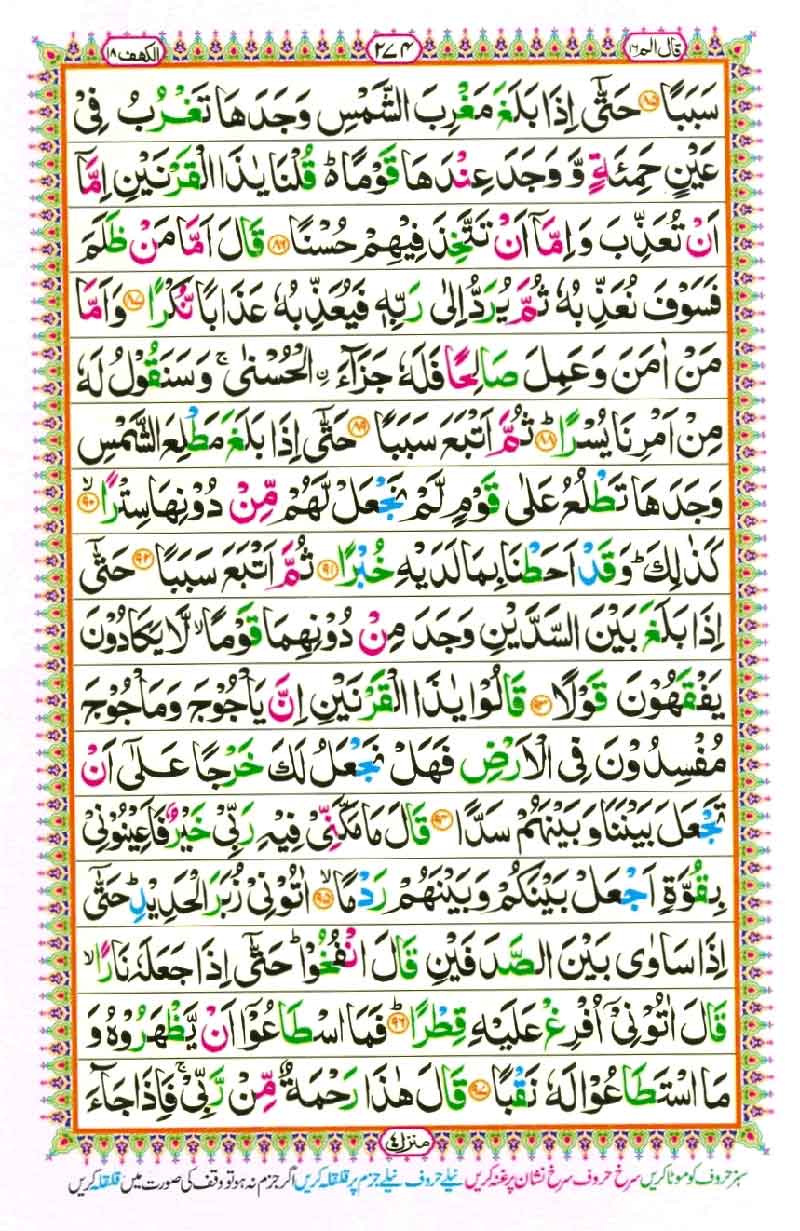 قال الم ١٦ ٢٧٤ الكهف ١٨
سَبَبًا ۝٨٥ حَتّٰۤی اِذَا بَلَغَ مَغْرِبَ الشَّمْسِ وَجَدَهَا تَغْرُبُ فِیْ
عَیْنٍ حَمِئَةٍ وَّ وَجَدَ عِنْدَهَا قَوْمًا ؕ۬ قُلْنَا یٰذَا الْقَرْنَیْنِ اِمَّاۤ
اَنْ تُعَذِّبَ وَ اِمَّاۤ اَنْ تَتَّخِذَ فِیْهِمْ حُسْنًا ۝٨٦ قَالَ اَمَّا مَنْ ظَلَمَ
فَسَوْفَ نُعَذِّبُهٗ ثُمَّ یُرَدُّ اِلٰی رَبِّهٖ فَیُعَذِّبُهٗ عَذَابًا نُّكْرًا ۝٨٧ وَ اَمَّا
مَنْ اٰمَنَ وَ عَمِلَ صَالِحًا فَلَهٗ جَزَآءَ ِ۟الْحُسْنٰی ۚ وَ سَنَقُوْلُ لَهٗ
مِنْ اَمْرِنَا یُسْرًا ؕ۝٨٨ ثُمَّ اَتْبَعَ سَبَبًا ۝٨٩ حَتّٰۤی اِذَا بَلَغَ مَطْلِعَ الشَّمْسِ
وَجَدَهَا تَطْلُعُ عَلٰی قَوْمٍ لَّمْ نَجْعَلْ لَّهُمْ مِّنْ دُوْنِهَا سِتْرًا ۙ۝٩٠
كَذٰلِكَ ؕ وَ قَدْ اَحَطْنَا بِمَا لَدَیْهِ خُبْرًا ۝٩١ ثُمَّ اَتْبَعَ سَبَبًا ۝٩٢ حَتّٰۤی
اِذَا بَلَغَ بَیْنَ السَّدَّیْنِ وَجَدَ مِنْ دُوْنِهِمَا قَوْمًا ۙ لَّا یَكَادُوْنَ
یَفْقَهُوْنَ قَوْلًا ۝٩٣ قَالُوْا یٰذَا الْقَرْنَیْنِ اِنَّ یَاْجُوْجَ وَ مَاْجُوْجَ
مُفْسِدُوْنَ فِی الْاَرْضِ فَهَلْ نَجْعَلُ لَكَ خَرْجًا عَلٰۤی اَنْ
تَجْعَلَ بَیْنَنَا وَ بَیْنَهُمْ سَدًّا ۝٩٤ قَالَ مَا مَكَّنِّیْ فِیْهِ رَبِّیْ خَیْرٌ فَاَعِیْنُوْنِیْ
بِقُوَّةٍ اَجْعَلْ بَیْنَكُمْ وَ بَیْنَهُمْ رَدْمًا ۙ۝٩٥ اٰتُوْنِیْ زُبَرَ الْحَدِیْدِ ؕ حَتّٰۤی
اِذَا سَاوٰی بَیْنَ الصَّدَفَیْنِ قَالَ انْفُخُوْا ؕ حَتّٰۤی اِذَا جَعَلَهٗ نَارًا ۙ
قَالَ اٰتُوْنِیْۤ اُفْرِغْ عَلَیْهِ قِطْرًا ؕ۝٩٦ فَمَا اسْطَاعُوْۤا اَنْ یَّظْهَرُوْهُ وَ
مَا اسْتَطَاعُوْا لَهٗ نَقْبًا ۝٩٧ قَالَ هٰذَا رَحْمَةٌ مِّنْ رَّبِّیْ ۚ فَاِذَا جَآءَ
منزل ٤
سبز حروف کو موٹا کریں سرخ حروف سرخ نشان پر غنہ کریں نیلے حروف نیلے جزم پر قلقلہ کریں اگر جزم نہ ہو تو وقف کی صورت میں قلقلہ کریں